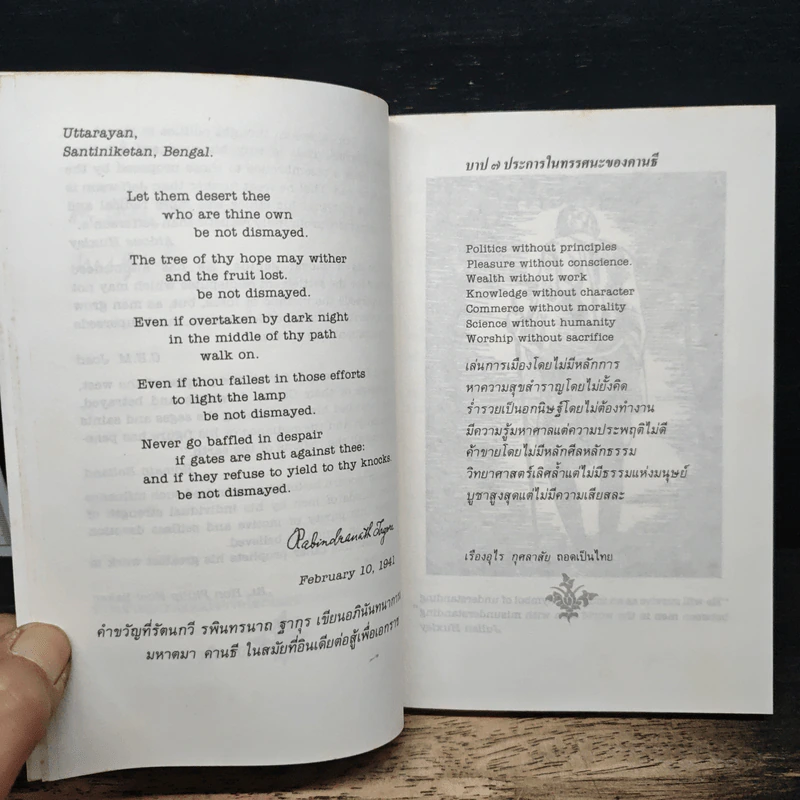 Uttarayan,
Santiniketan, Bengal.
Let them desert thee
who are thine own
be not dismayed.
The tree of thy hope may wither
and the fruit lost.
be not dismayed.
Even if overtaken by dark night
in the middle of thy path
walk on.
Even if thou failest in those efforts
to light the lamp
be not dismayed.
Never go baffled in despair
if gates are shut against thee:
and if they refuse to yield to thy knocks.
be not dismayed.
Rabindranath Tagore
February 10, 1941
คำขวัญที่รัตนกวี รพินทรนาถ ฐากุร เขียนอภินันทนาการ
มหาตมา คานธี ในสมัยที่อินเดียต่อสู้เพื่อเอกราช
บาป ๗ ประการในทรรศนะของคานธี
Politics without principles
Pleasure without conscience.
Wealth without work
Knowledge without character
Commerce without morality
Science without humanity
Worship without sacrifice
เล่นการเมืองโดยไม่มีหลักการ
หาความสุขสำราญโดยไม่ยั้งคิด
ร่ำรวยเป็นอกนิษฐ์โดยไม่ต้องทำงาน
มีความรู้มหาศาลแต่ความประพฤติไม่ดี
ค้าขายโดยไม่มีหลักศีลหลักธรรม
วิทยาศาสตร์เลิศล้ำแต่ไม่มีธรรมแห่งมนุษย์
บูชาสูงสุดแต่ไม่มีความเสียสละ
เรืองอุไร กุศลาสัย ถอดเป็นไทย